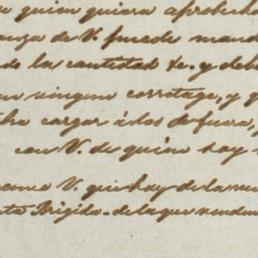 quien quiera aprobecha
anza de V. puede mand
de la cantidad &c. y deb
ningun corretage, y q
cargar á los de fuera,
con V. de quien soy
V. que hay de la
Brigida de la que vendim